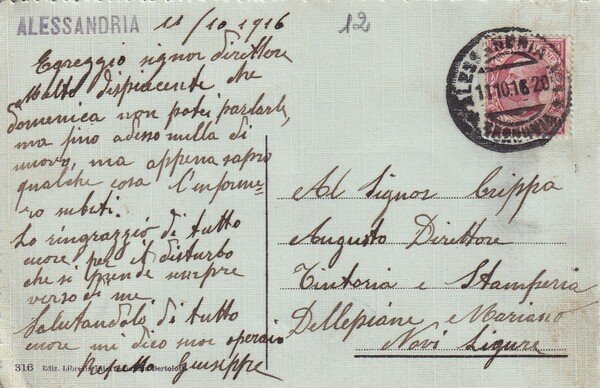 ALESSANDRIA
11/10 1916
12
Egreggio signor direttore
Molto dispiacente che
domenica non potei parlarle,
ma fino adesso nulla di
nuovo, ma appena sapro
qualche cosa l'informe=
ro subiti.
Lo ringrazziò di tutto
cuore per il disturbo
che si prende sempre
verso di me
Salutandolo, di tutto
cuore mi dico suo operaio
Giuseppe
ALESSANDRIA
11.10.16 20
Al Signor Crippa
Augusto Direttore
Tintoria e Stamperia
Dellepiane e Mariano
Novi Ligure
316 Ediz.